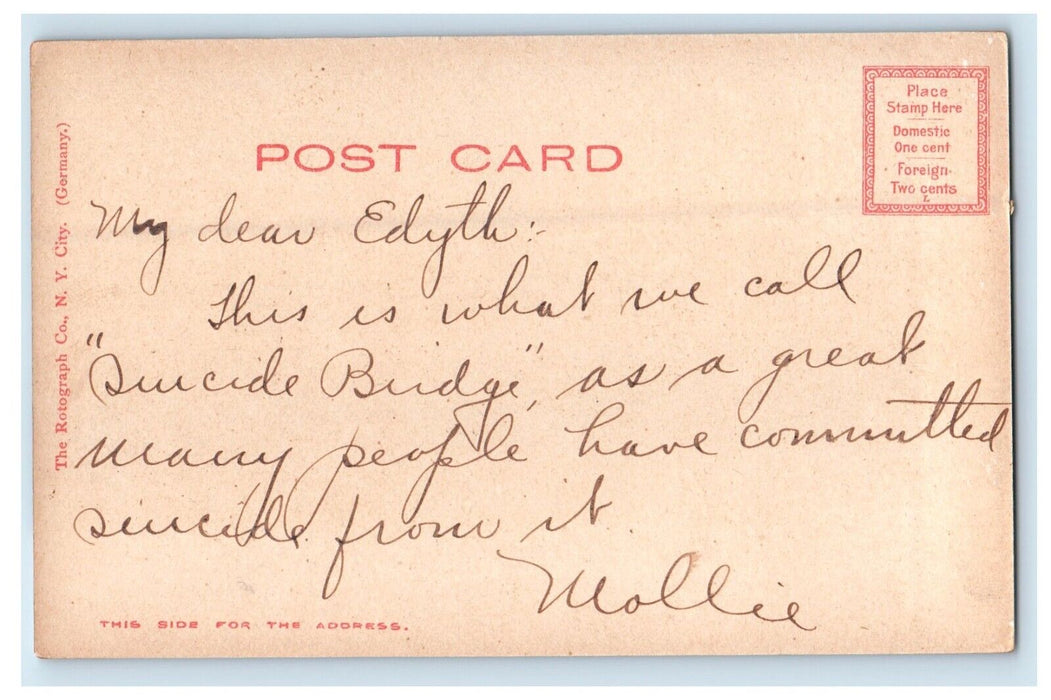 Place
Stamp Here
Domestic
One cent
Foreign
Two cents
L
POST CARD
The Rotograph Co., N. Y. City. (Germany.)
My dear Edyth:-
This is what we call
"Suicide Bridge", as a great
many people have committed
suicide from it.
Mollie
THIS SIDE FOR THE ADDRESS.